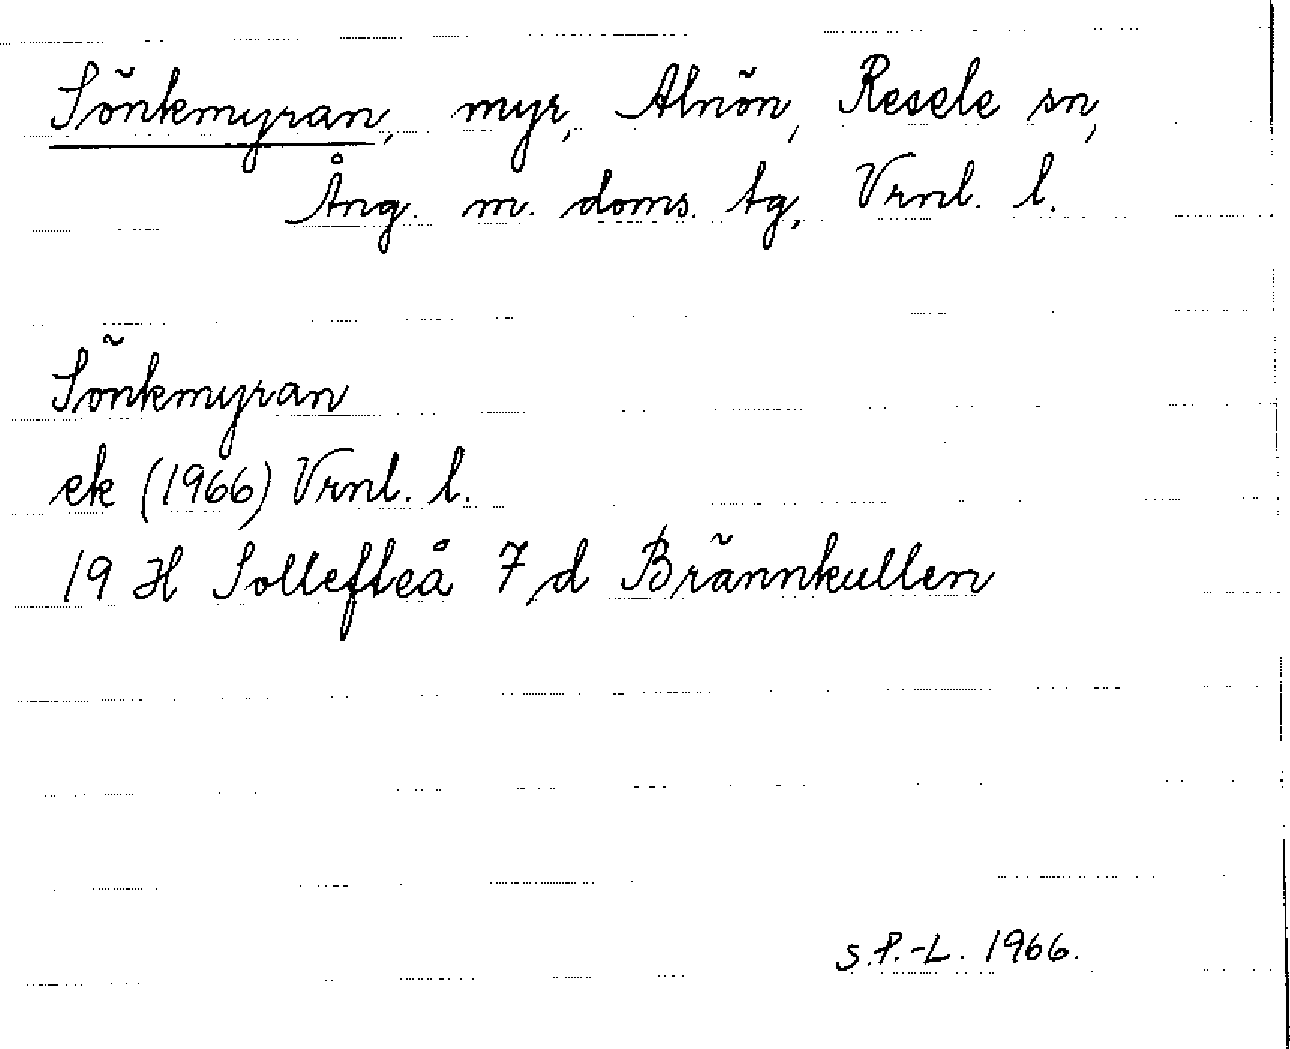 Sönkmyran, myr, Alnön, Resele sn,
Ång. m. doms. tg, Vrnl. l.
Sönkmyran
ek (1966) Vrnl. l.
19 H Sollefteå 7 d Brännkullen
S.P.-L. 1966.